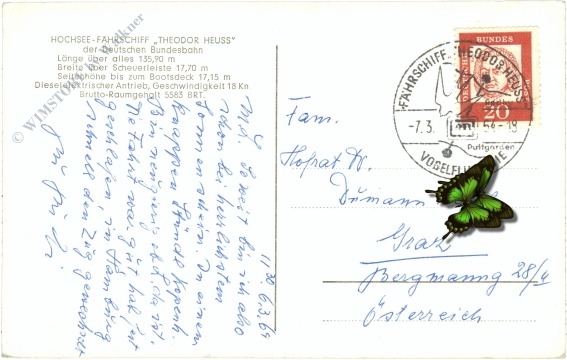 HOCHSEE-FÄHRSCHIFF „THEODOR HEUSS"
der Deutschen Bundesbahn
Länge über alles 135,90 m
Breite über Scheuerleiste 17,70 m
Seitenhöhe bis zum Bootsdeck 17,15 m
Dieselelektrischer Antrieb, Geschwindigkeit 18 Kn
Brutto-Raumgehalt 5583 BRT.
© WIMSTORE by Faulkner
11.30 6.3.64
M. L. Soweit bin ich also
schon bei herrlichstem
Sonnenschein. In einem
knappen
bin neugierig ob
Die Fahrt war gut hab gut
geschlafen, in Hamburg
schnell den Zug gewechselt
FÄHRSCHIFF "THEODOR HEUSS"
-7.3. 64-18
Puttgarden
VOGELFLUGLINIE
DEUTSCHE BUNDESPOST
20
Fam.
Hofrat W.
Dumann
Graz
Bergmanng 28/II
Österreich